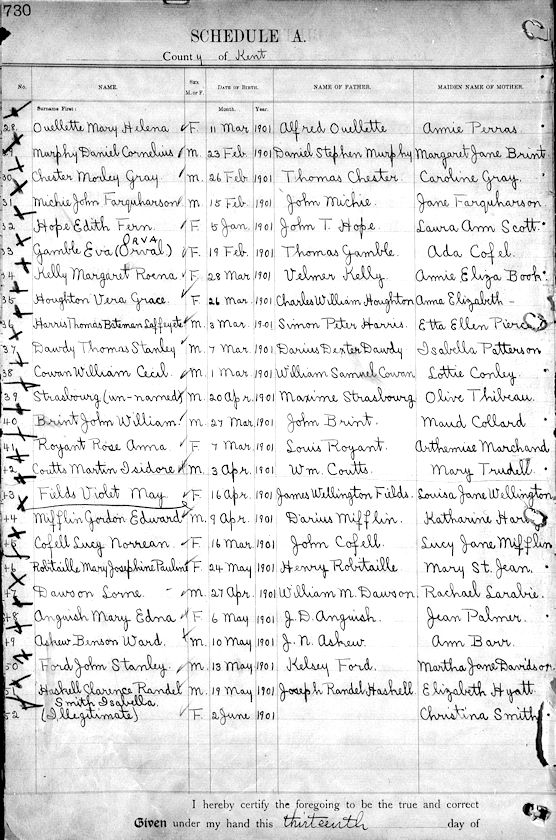 730
SCHEDULE A.
County of Kent
No. NAME. Sex M. or F. DATE OF BIRTH. NAME OF FATHER. MAIDEN NAME OF MOTHER.
Surname First: Month. Year.
28 Ouellette Mary Helena F. 11 Mar 1901 Alfred Ouellette Annie Perras.
29 Murphy Daniel Cornelius M. 23 Feb 1901 Daniel Stephen Murphy Margaret Jane Brint
30 Chester Morley Gray M. 26 Feb 1901 Thomas Chester Caroline Gray.
31 Michie John Farquharson M. 15 Feb 1901 John Michie. Jane Farquharson.
32 Hope Edith Fern. F. 5 Jan. 1901 John T. Hope. Laura Ann Scott
ORVA
33 Gamble Eva (Orval) F. 19 Feb 1901 Thomas Gamble. Ada Cofel.
34 Kelly Margaret Roena F. 28 Mar 1901 Velmer Kelly. Annie Eliza Book.
35 Houghton Vera Grace. F. 26 Mar 1901 Charles William Houghton Anna Elizabeth -
36 Harris Thomas Bateman Laffeyete M. 3 Mar. 1901 Simon Peter Harris. Etta Ellen Pierce
37 Dawdy Thomas Stanley M. 7 Mar 1901 Darius Dexter Dawdy Isabella Patterson
38 Cowan William Cecil. M. 1 Mar 1901 William Samuel Cowan Lottie Conley.
39 Strasbourg (un-named) M. 20 Apr. 1901 Maxime Strasbourg Olive Thibeau.
40 Brint John William. M. 27 Mar 1901 John Brint. Maud Collard.
41 Royant Rose Anna F. 7 Mar 1901 Louis Royant. Arthemise Marchand
42 Coutts Martin Isidore M. 3 Apr. 1901 Wm. Coutts. Mary Trudell.
43 Fields Violet May F. 16 Apr. 1901 James Wellington Fields. Louisa Jane Wellington
44 Mifflin Gordon Edward M. 9 Apr. 1901 Darius Mifflin. Katharine
45 Cofell Lucy Norrean. F. 16 Mar. 1901 John Cofell. Lucy Jane Mifflin
46 Robitaille Mary Josephine Pauline F. 24 May 1901 Henry Robitaille Mary St. Jean.
47 Dawson Lorne. - M. 27 Apr. 1901 William M. Dawson. Rachael Larabie.
48 Anguish Mary Edna F. 6 May 1901 J. D. Anguish. Jean Palmer.
49 Askew Benson Ward. M. 10 May 1901 J. N. Askew. Ann Barr.
50 Ford John Stanley. M. 13 May 1901 Kelsey Ford. Martha Jane Davidson.
51 Haskell Clarence Randel M. 19 May 1901 Joseph Randel Haskell. Elizabeth Hyatt
Smith Isabella.
52 (Illegitimate) F. 2 June 1901 Christina Smith
I hereby certify the foregoing to be the true and correct
Given under my hand this thirteenth day of